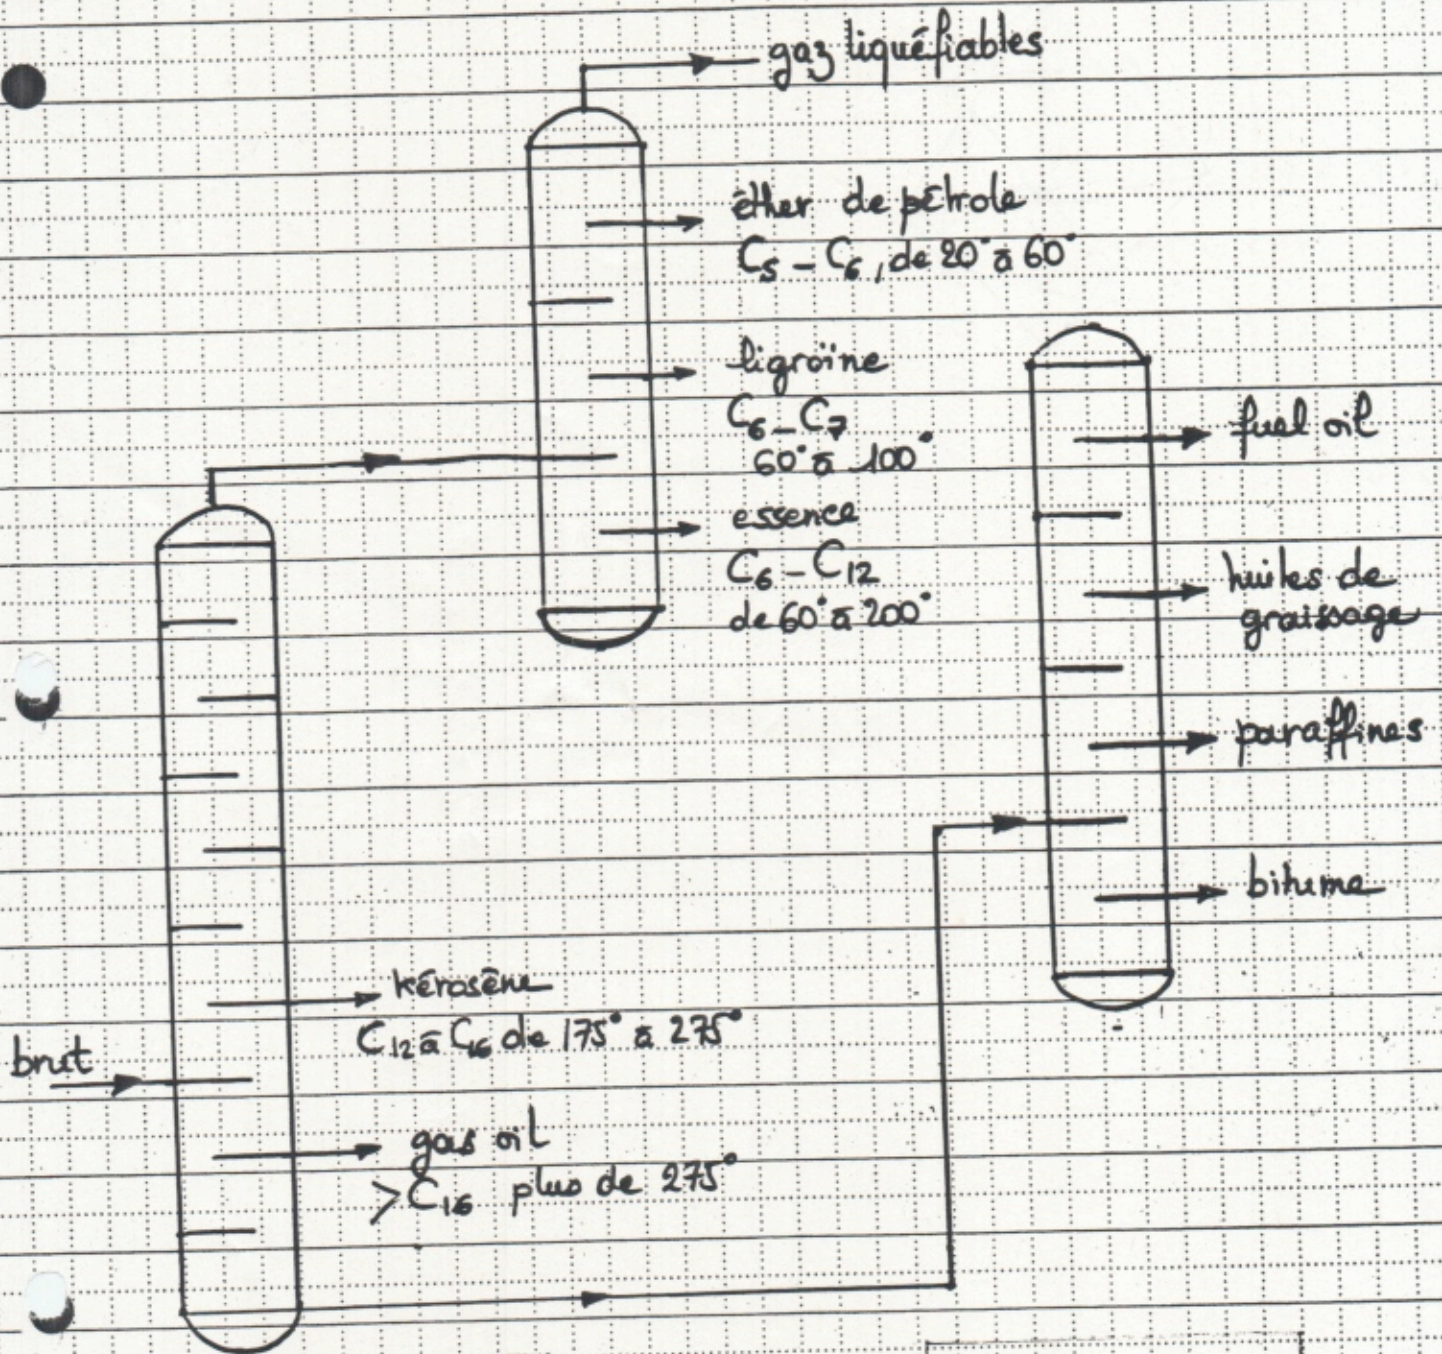 gaz liquéfiables
éther de pétrole
C₅ – C₆, de 20° à 60°
ligroïne
C₆ – C₇
60° à 100°
essence
C₆ – C₁₂
de 60° à 200°
fuel oil
huiles de
graissage
paraffines
bitume
kérosène
C₁₂ à C₁₆ de 175° à 275°
brut
gas oil
> C₁₆ plus de 275°